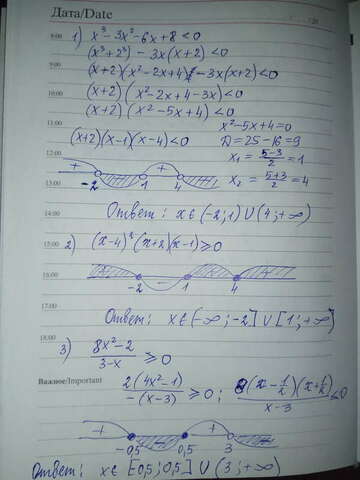 Дата/Date
8:00 1) x³-3x²-6x+8<0
(x³+2³) - 3x(x+2)<0
9:00 (x+2)(x²-2x+4) - 3x(x+2)<0
10:00 (x+2)(x²-2x+4-3x)<0
(x+2)(x²-5x+4)<0
11:00 x²-5x+4=0
(x+2)(x-1)(x-4)<0 D=25-16=9
12:00 x₁ = (5-3)/2 = 1
+ + 
-2 1 4
13:00 x₂ = (5+3)/2 = 4
14:00 Ответ: x∈(-2;1)∪(4;+∞)
15:00 2) (x-4)²(x+2)(x-1)≥0
16:00 -2 1 4
17:00 Ответ: x∈(-∞;-2]∪[1;+∞)
18:00 3) (8x²-2)/(3-x) ≥0
Важное/Important 2(4x²-1)/-(x-3) ≥0; 8(x-1/2)(x+1/2)/(x-3) ≤0
+ +
-0,5 0,5 3
Ответ: x∈[-0,5;0,5]∪(3;+∞)